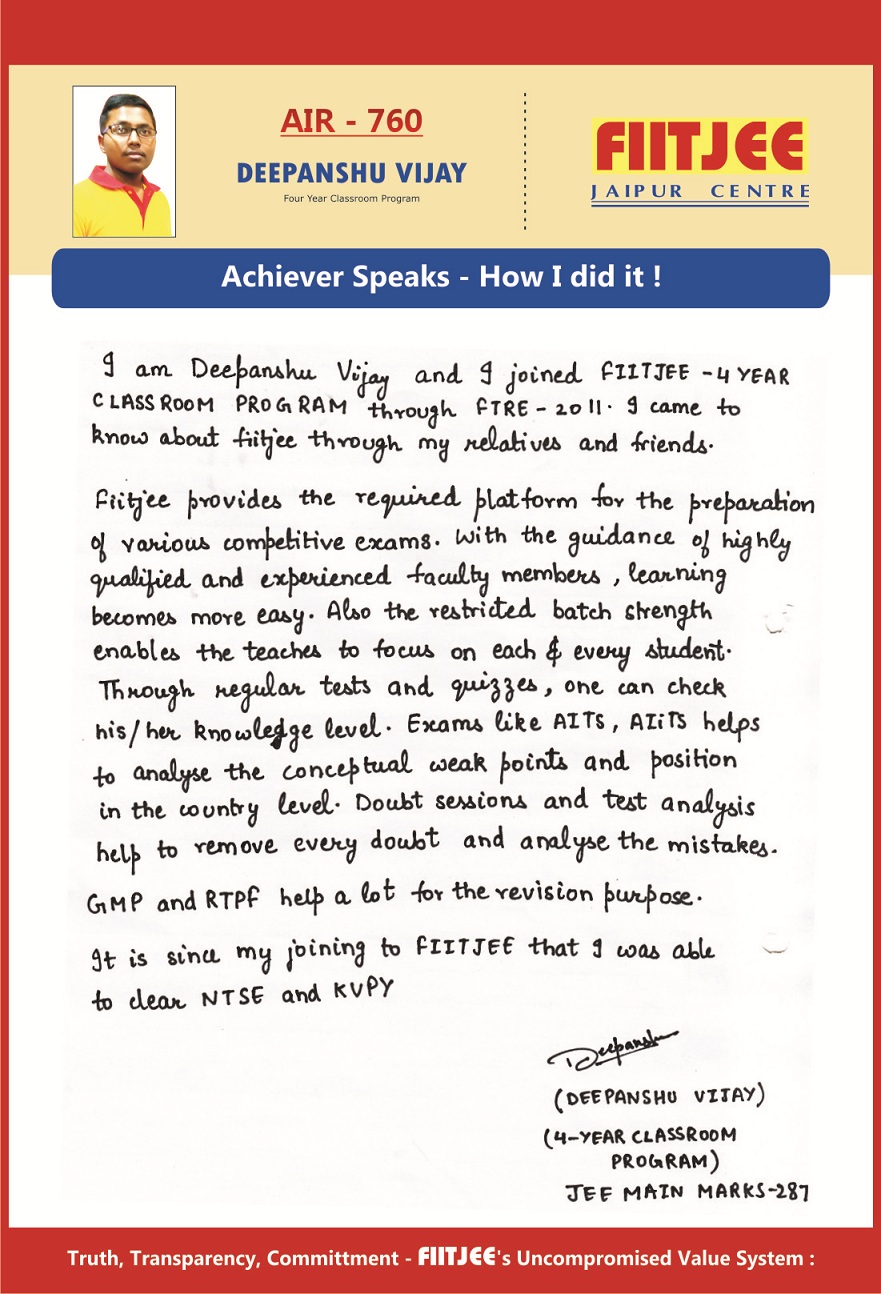 AIR - 760
DEEPANSHU VIJAY
Four Year Classroom Program
FIITJEE
JAIPUR CENTRE
Achiever Speaks - How I did it !
I am Deepanshu Vijay and I joined FIITJEE - 4 YEAR
CLASSROOM PROGRAM through FTRE - 2011. I came to
know about fiitjee through my relatives and friends.
Fiitjee provides the required platform for the preparation
of various competitive exams. With the guidance of highly
qualified and experienced faculty members, learning
becomes more easy. Also the restricted batch strength
enables the teaches to focus on each & every student.
Through regular tests and quizzes, one can check
his/her knowledge level. Exams like AITS, AIITS helps
to analyse the conceptual weak points and position
in the country level. Doubt sessions and test analysis
help to remove every doubt and analyse the mistakes.
GMP and RTPF help a lot for the revision purpose.
It is since my joining to FIITJEE that I was able
to clear NTSE and KVPY
Deepanshu
(DEEPANSHU VIJAY)
(4-YEAR CLASSROOM
PROGRAM)
JEE MAIN MARKS-287
Truth, Transparency, Committment - FIITJEE's Uncompromised Value System :